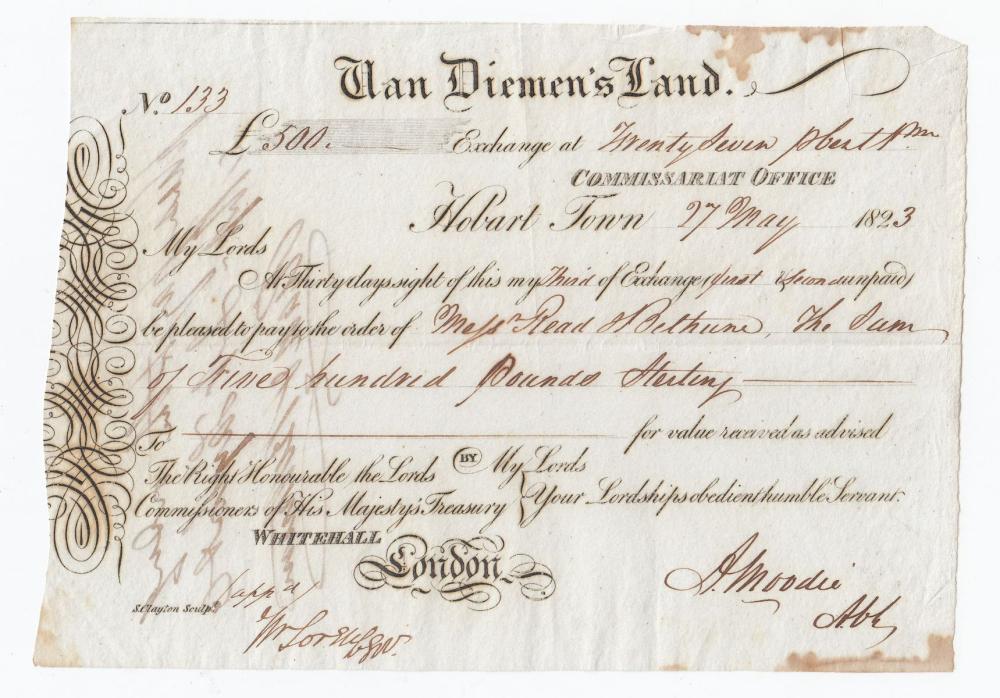 Van Diemen's Land.
No. 133
£500. Exchange at Twenty Seven
COMMISSARIAT OFFICE
Hobart Town 27 May 1823
My Lords
At Thirty days sight of this my Third of Exchange (first & Second unpaid)
be pleased to pay to the order of Messrs Read & Bethune, The Sum
of Five hundred Pounds Sterling
for value received as advised
To
The Right Honourable the Lords BY My Lords
Commissioners of His Majesty's Treasury Your Lordships obedient humble Servant.
WHITEHALL
London
A. Moodie
(app d)
S. Clayton Sculpt.
Wm Sorell